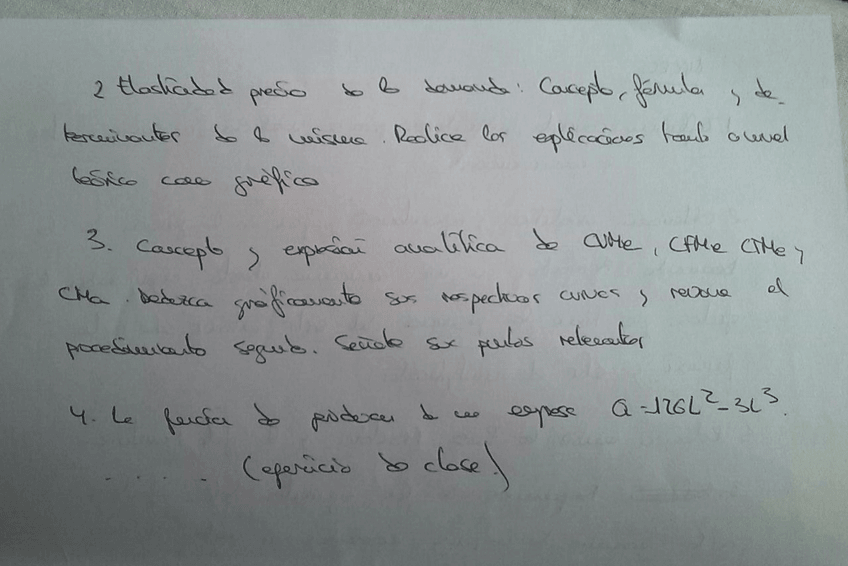 2 Elasticidad precio de la demanda: Concepto, fórmula y de-
terminantes de la misma. Realice las explicaciones tanto a nivel
teórico como gráfico
3. Concepto y expresión analítica de CVMe, CFMe CTMe y
CMa. Deduzca gráficamente sus respectivas curvas y razone el
procedimiento seguido. Señale sus puntos relevantes
4. La función de producción de una empresa Q = 126L² - 3L³.
. . . . . (ejercicio de clase)